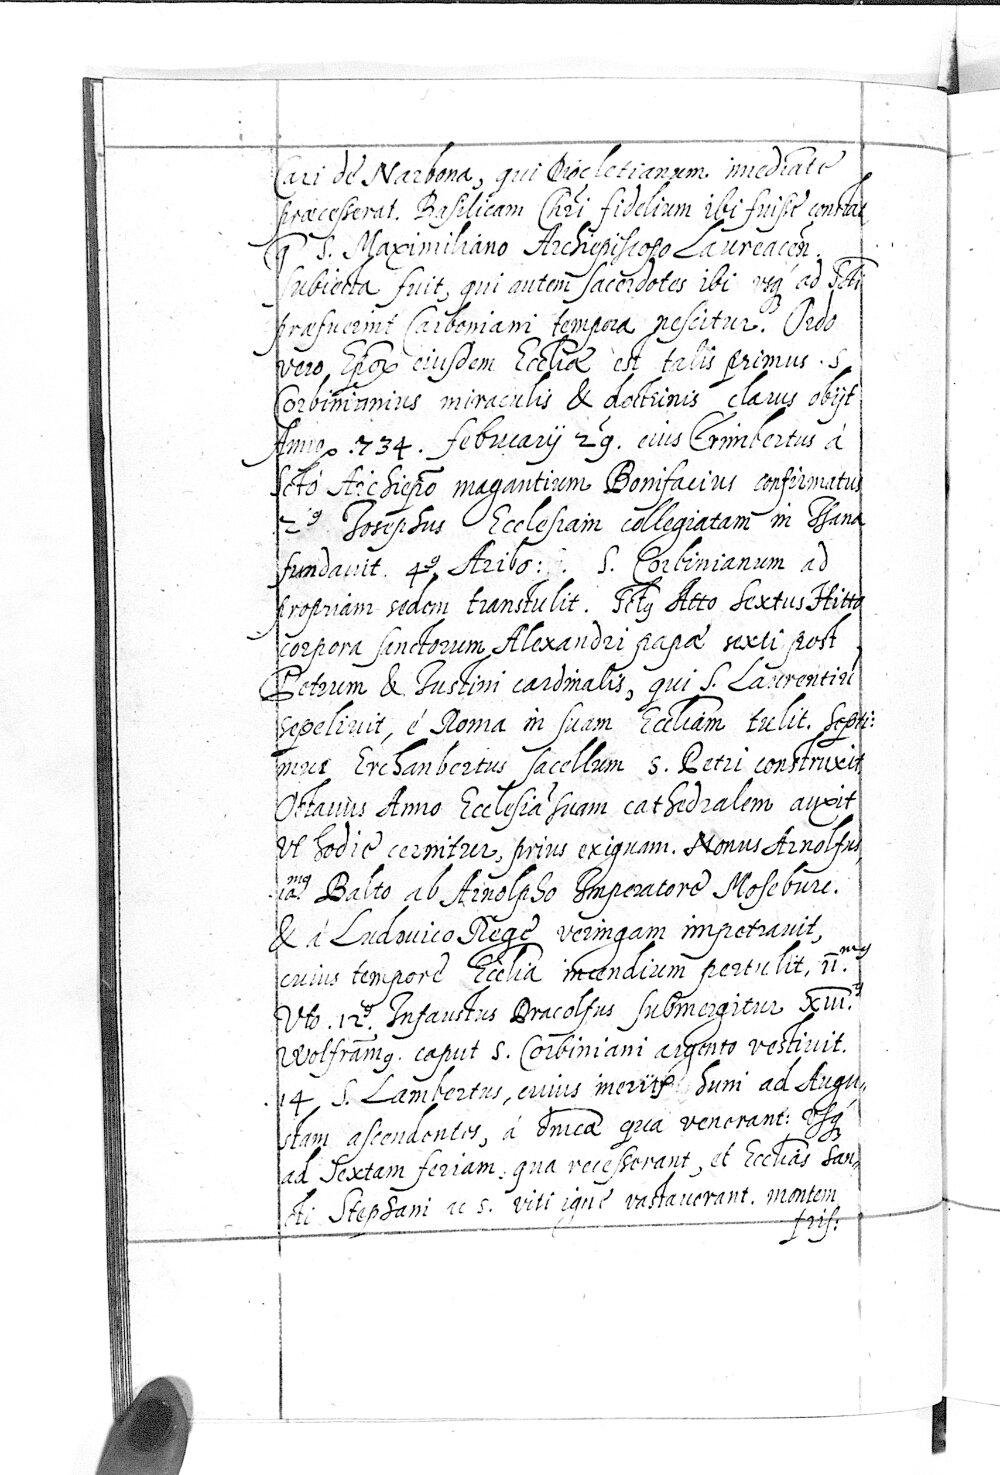 Cari de Narbona, qui Diocletianum imediate
præcesserat. Basilicam Chri fidelium ibi fuisse constat
q S. Maximiliano Archiepiscopo Laureacen.
subiecta fuit, qui autem sacerdotes ibi vsq ad Scti
præfuerint Carboniani tempora nescitur. Ordo
vero Epox eiusdem Eccliæ est talis primus. S.
Corbinianius miraculis & doctrinis clarus obijt
Anno .734. februarij 29. eius Erimbertus á
Scto Archiepo magantium Bonifacius confirmatus
Josephus Ecclesiam collegiatam in
fundauit. 49 Aribo: S. Corbinianum ad
propriam sedem transtulit. Atto Sextus Hitto
corpora sanctorum Alexandri papæ sexti post
Petrum & Justini cardinalis, qui S. Laurentiu
sepeliuit, é Roma in suam Eccliam tulit. Septi:
mus Erchanbertus sacellum S. Petri construxit
Octauus Anno Ecclesia suam cathedralem auxit
vt hodie cernitur, prius exiguam. Nonus Arnolfus,
Balto ab Arnolpho Imperatore Mosburc.
& á Ludouico Rege veringam impetrauit,
cuius tempore Ecclia incendium pertulit, 11.mg
Vto .129. Infaustus Dracolfus submergitur XIII.9
Wolframg. caput S. Corbiniani argento vestiuit.
.14 S. Lambertus, cuius meritis huni ad Augu,,
stam ascendentes, á dnica qua venerant: vsq
ad Sextam feriam, qua recesserant, et Ecclias San,,
cti Stephani ac S. viti igne vastauerant. montem
fris: